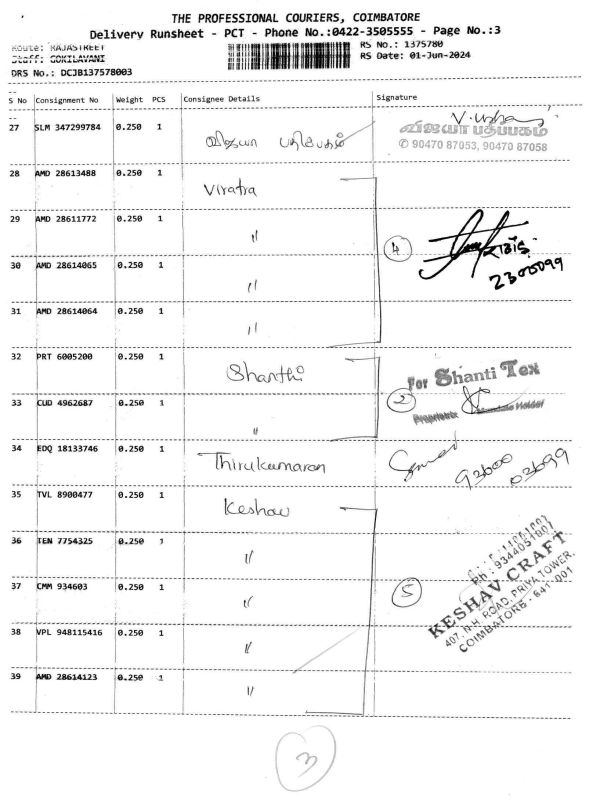 THE PROFESSIONAL COURIERS, COIMBATORE
Delivery Runsheet - PCT - Phone No.:0422-3505555 - Page No.:3
Route: RAJASTREET
RS No.: 1375780
Staff: GOKILAVANI
RS Date: 01-Jun-2024
DRS No.: DCJB137578003
S No Consignment No Weight PCS Consignee Details Signature
27 SLM 347299784 0.250 1 விஜயா பதிப்பகம்
விஜயா பதிப்பகம்
✆ 90470 87053, 90470 87058
28 AMD 28613488 0.250 1 Viratra
29 AMD 28611772 0.250 1 "
4
30 AMD 28614065 0.250 1 "
2300099
31 AMD 28614064 0.250 1 "
32 PRT 6005200 0.250 1 Shanthi
For Shanti Tex
33 CUD 4962687 0.250 1 "
2
34 EDQ 18133746 0.250 1 Thirukumaran
93600
03699
35 TVL 8900477 0.250 1 Keshav
36 TEN 7754325 0.250 1 "
37 CMM 934603 0.250 1 "
5
Ph : 9344051007
KESHAV CRAFT
407, N.H. ROAD, PRIYA TOWER,
COIMBATORE - 641 001
38 VPL 948115416 0.250 1 "
39 AMD 28614123 0.250 1 "
3